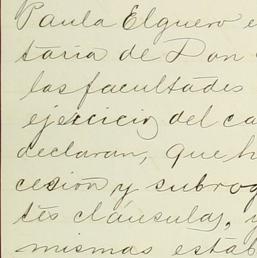 Paula Elguero e
taria de Don
las facultades
ejercicio del ca
declaran, que h
cesión y subrog
tes cláusulas, y
mismas estab